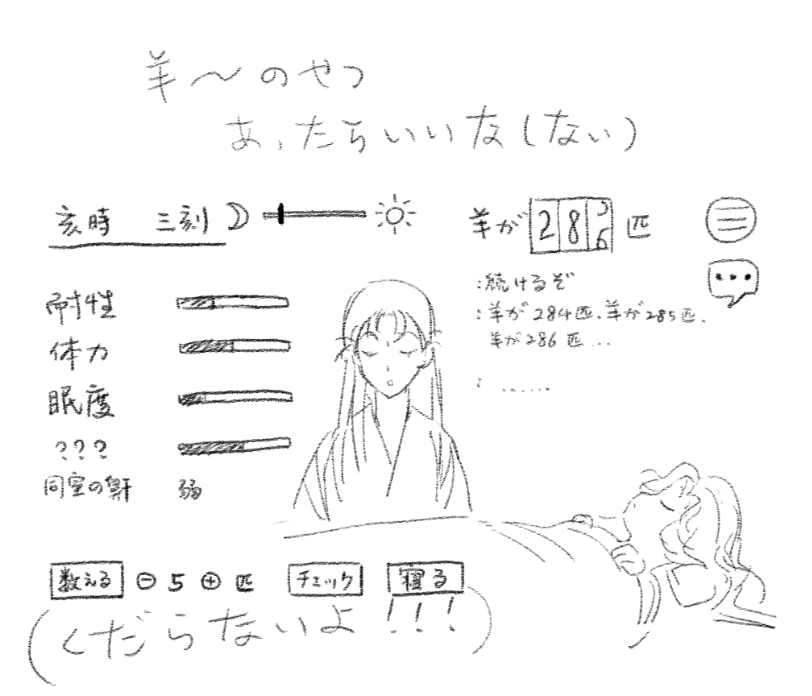 羊～のやつ
あ、たらいいな(ない)
亥時 三刻
羊が 285 匹
6
耐性
体力
眠度
???
同室の鼾 弱
:続けるぞ
:羊が284匹、羊が285匹、
羊が286匹...
:......
数える ⊖ 5 ⊕ 匹 チェック 寝る
(くだらないよ!!!)